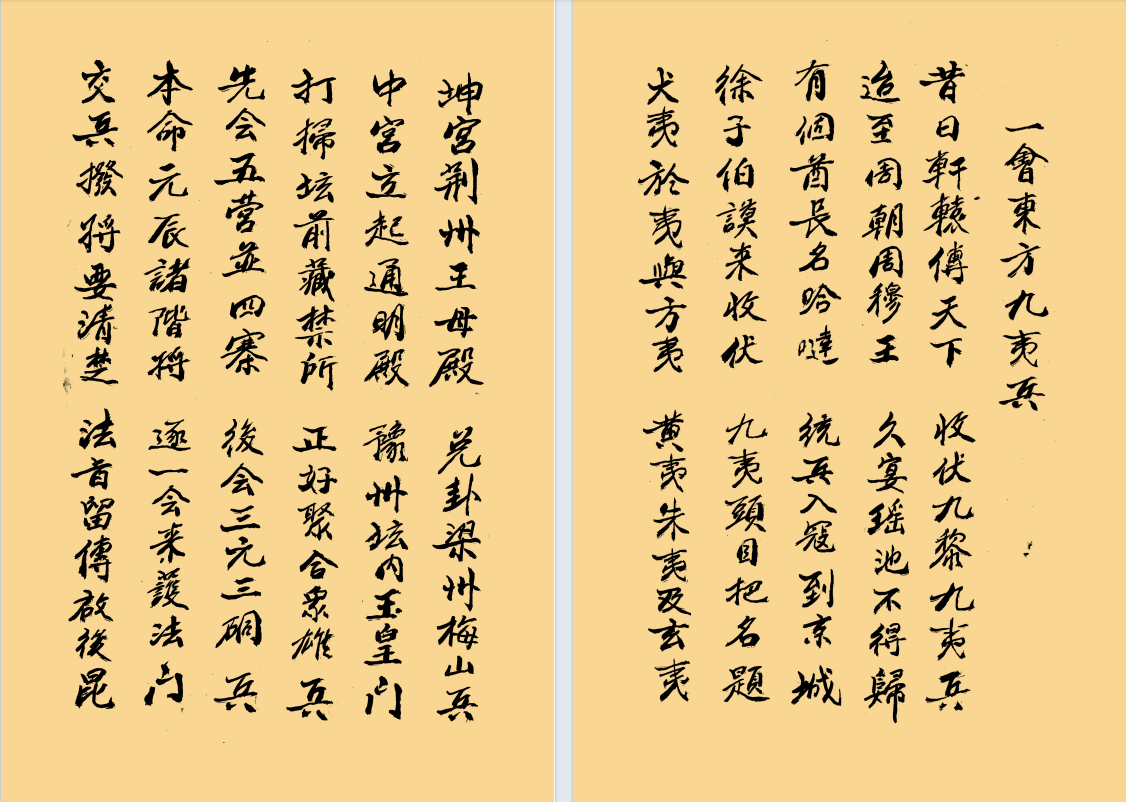 坤宮荆州王母殿 兌卦梁州梅山兵
中宮立起通明殿 豫州坛内玉皇门
打掃坛前藏禁所 正好聚合衆雄兵
先会五营並四寨 後会三元三硐兵
本命元辰諸階将 逐一会来護法门
交兵撥将要清楚 法首留傳啟後昆
一會東方九夷兵
昔日軒轅傳天下 收伏九黎九夷兵
迨至周朝周穆王 久宴瑶池不得歸
有個酋長名哈噠 統兵入冦到京城
徐子伯謨来收伏 九夷頭目把名題
犬夷於夷與方夷 黄夷朱夷及玄夷